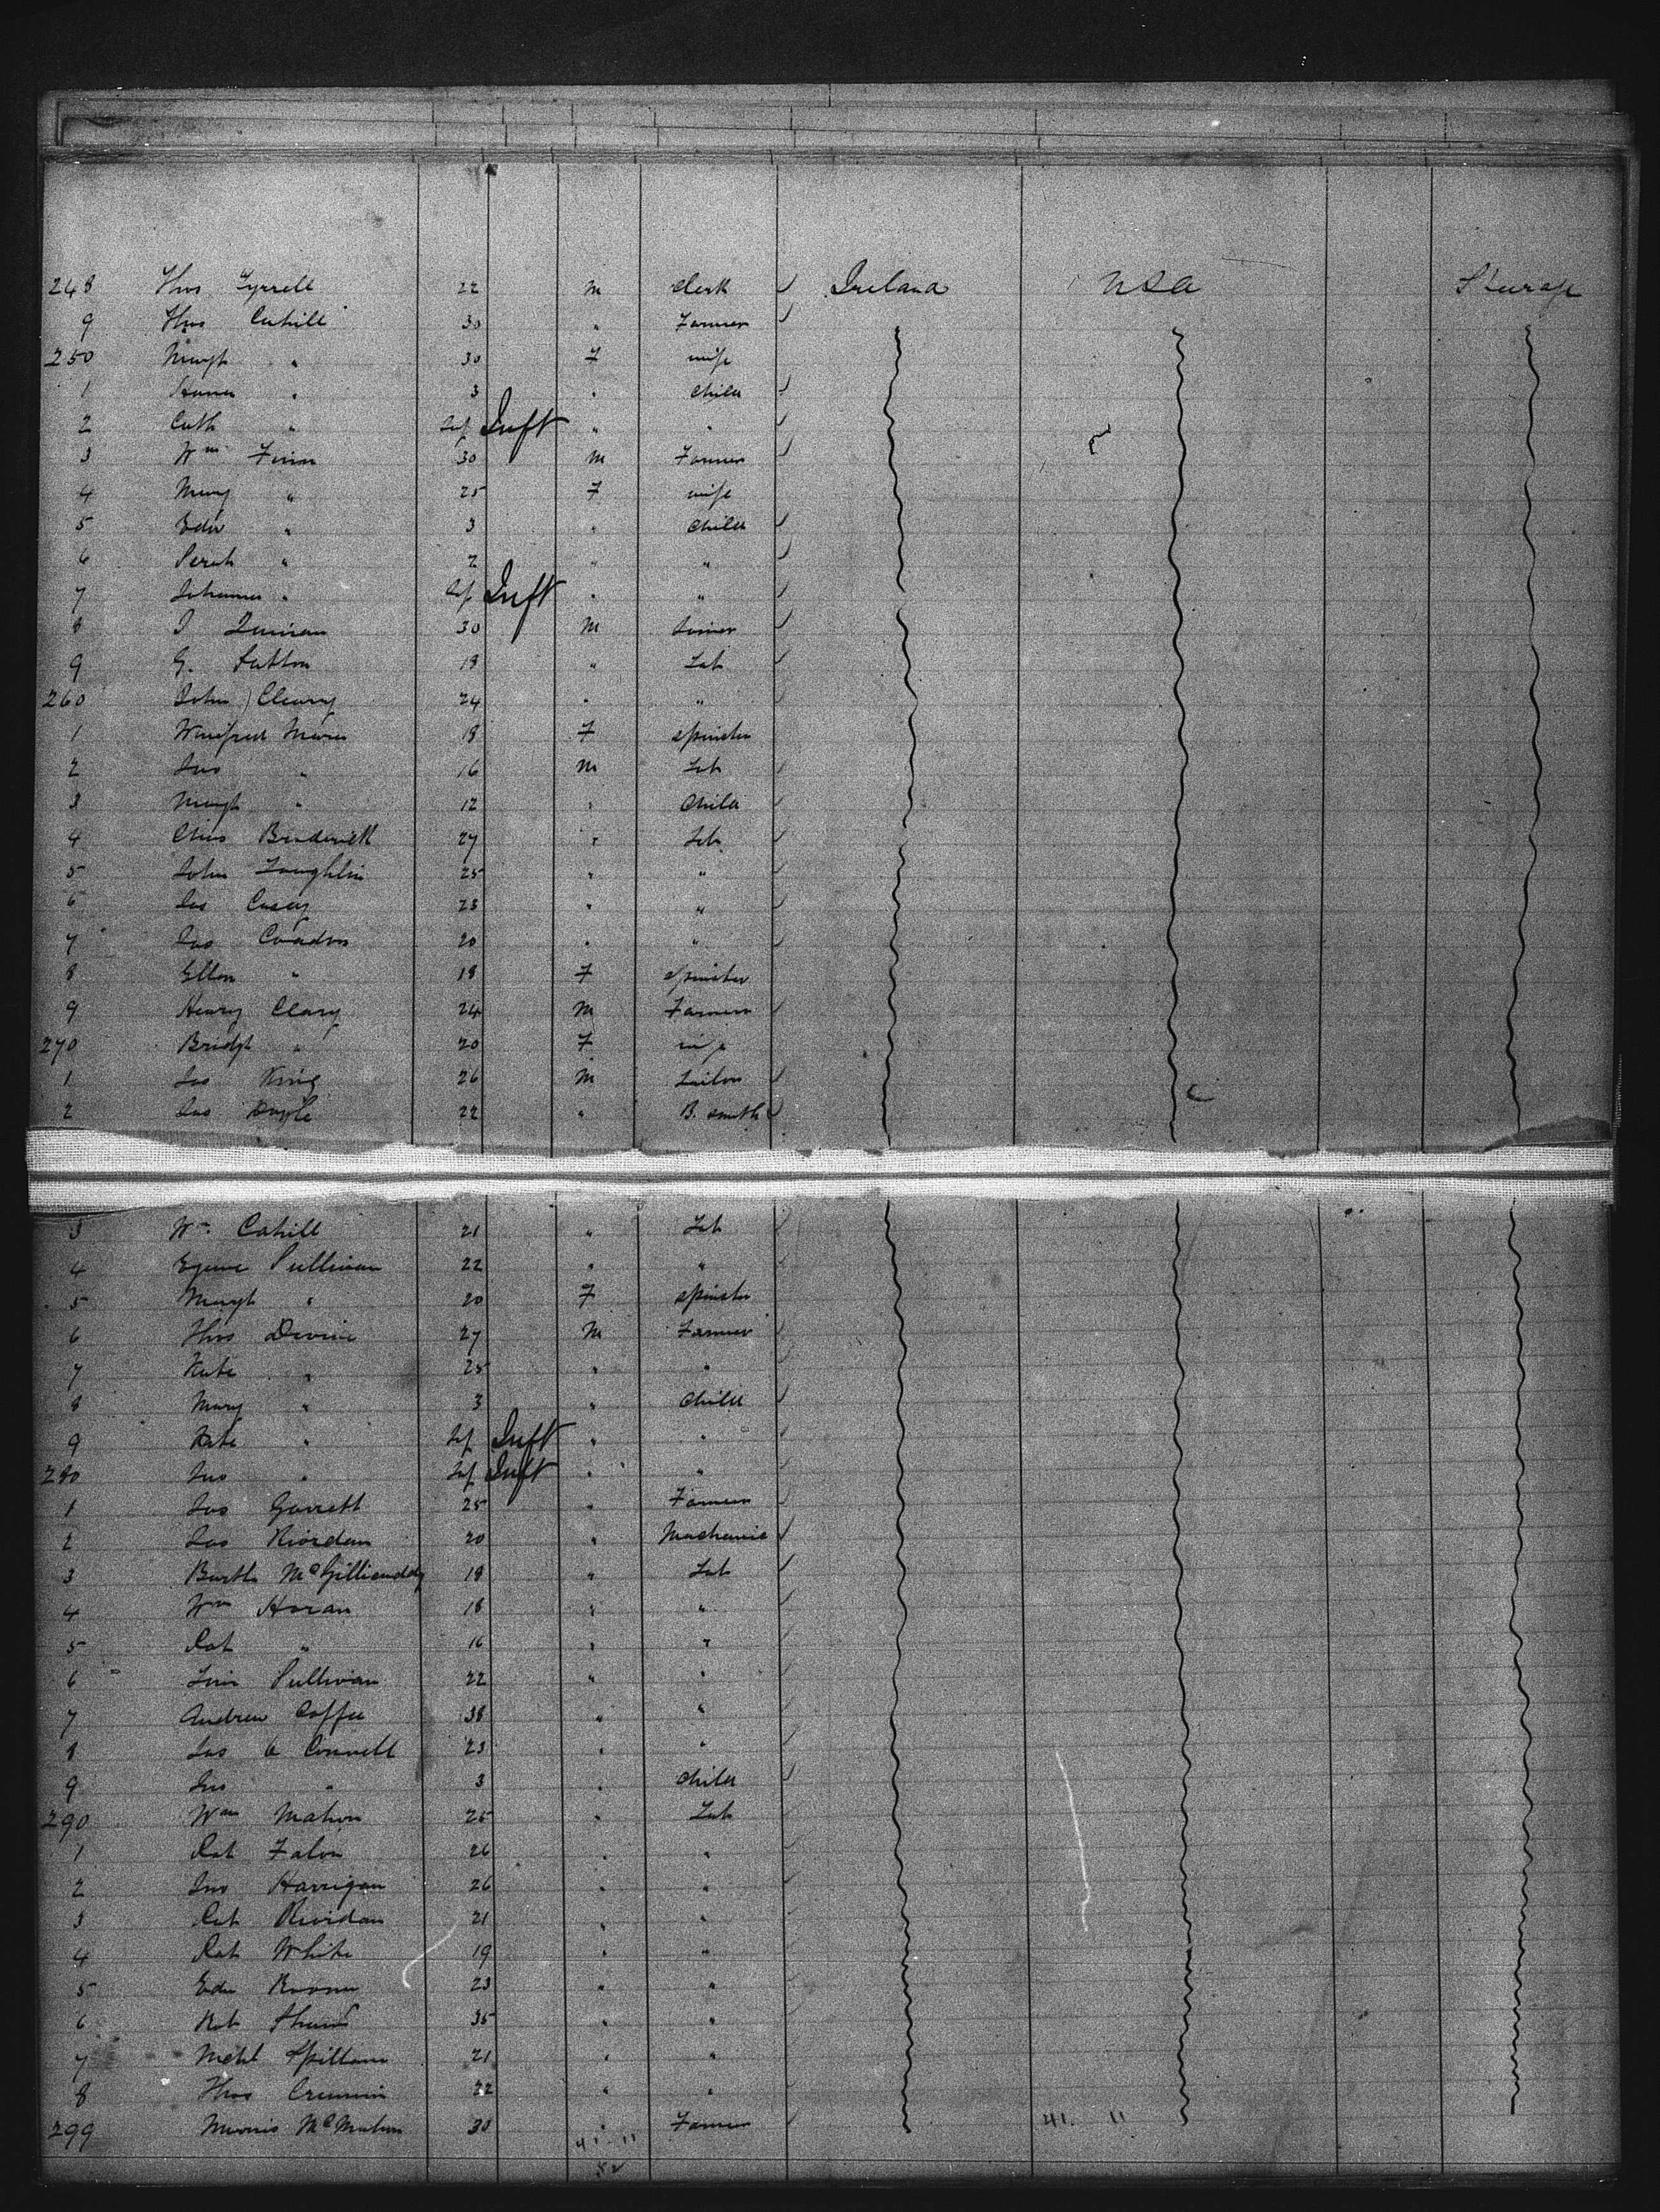 248 Thos Tyrrell 22 m Clerk Ireland USA Steerage
9 Thos Cahill 30 " Farmer
250 Margt " 30 F wife
1 Hanna " 3 " Child
2 Cath " Inf Inft " "
3 Wm Finn 30 m Farmer
4 Mary " 25 F wife
5 Edw " 3 " Child
6 " 2 " "
7 Johanna " Inf Inft " "
8 30 M
9 G. Sutton 18 " Lab
260 John Cleary 24 " "
1 Winifred 18 F spinster
2 Jno " 16 m Lab
3 Margt " 12 " Child
4 Chas Broderick 27 " Lab
5 John Loughlin 25 " "
6 Jas Casey 23 " "
7 Jas Condon 20 " "
8 Ellen " 18 F spinster
9 Henry Clary 24 M Farmer
270 Bridgt " 20 F wife
1 Jas King 26 M Tailor
2 Jas Doyle 22 " B. smith
3 Wm Cahill 21 " Lab
4 Sullivan 22 " "
5 Margt " 20 F spinster
6 Thos Devine 27 M Farmer
7 Kate " 25 " "
8 Mary " 3 " Child
9 Kate " Inf Inft " "
280 Jno " Inf Inft " "
1 Jas Garrett 25 " Farmer
2 Jas Riordan 20 " Mechanic
3 Barth McGillicuddy 18 " Lab
4 Wm Horan 18 " "
5 Pat " 16 " "
6 Sullivan 22 " "
7 Andrew Coffee 38 " "
8 Jas O Connell 23 " "
9 Jno " 3 " Child
290 Wm Mahon 25 " Lab
1 Pat Falon 26 " "
2 Jno Harrigan 26 " "
3 Pat Riordan 21 " "
4 Pat White 19 " "
5 Edw 23 " "
6 35 " "
7 Mchl Spillane 21 " "
8 Thos Crimmin 22 " "
299 Morris McMahon 30 " Farmer
41. 11
41. 11